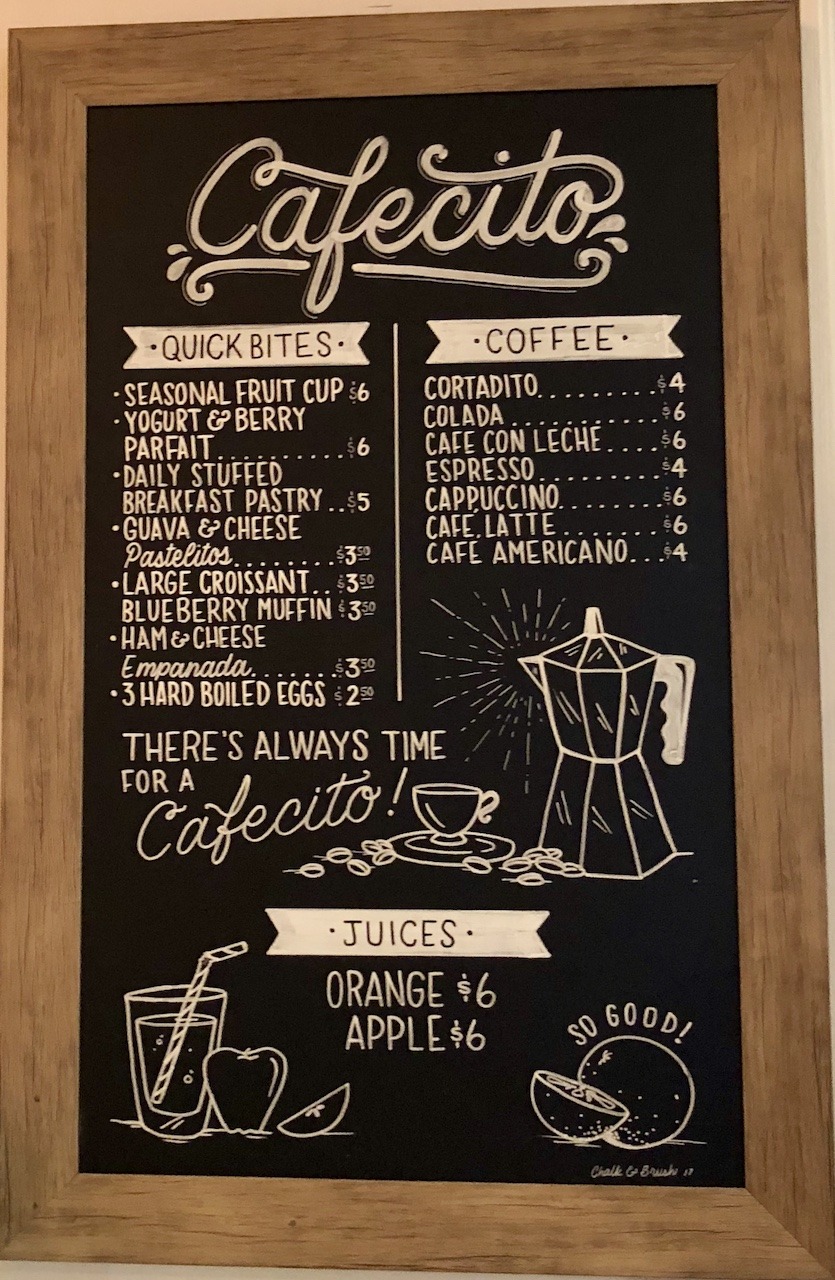 Cafecito
·QUICK BITES·
·SEASONAL FRUIT CUP $6
·YOGURT & BERRY
PARFAIT..........$6
·DAILY STUFFED
BREAKFAST PASTRY..$5
·GUAVA & CHEESE
Pastelitos........$3.50
·LARGE CROISSANT..$3.50
BLUEBERRY MUFFIN $3.50
·HAM & CHEESE
Empanada.......$3.50
·3 HARD BOILED EGGS $2.50
·COFFEE·
CORTADITO.........$4
COLADA...........$6
CAFE CON LECHE....$6
ESPRESSO.........$4
CAPPUCCINO.......$6
CAFE LATTE.......$6
CAFE AMERICANO...$4
THERE'S ALWAYS TIME
FOR A
Cafecito!
·JUICES·
ORANGE $6
APPLE $6
SO GOOD!
Chalk & Brush 17